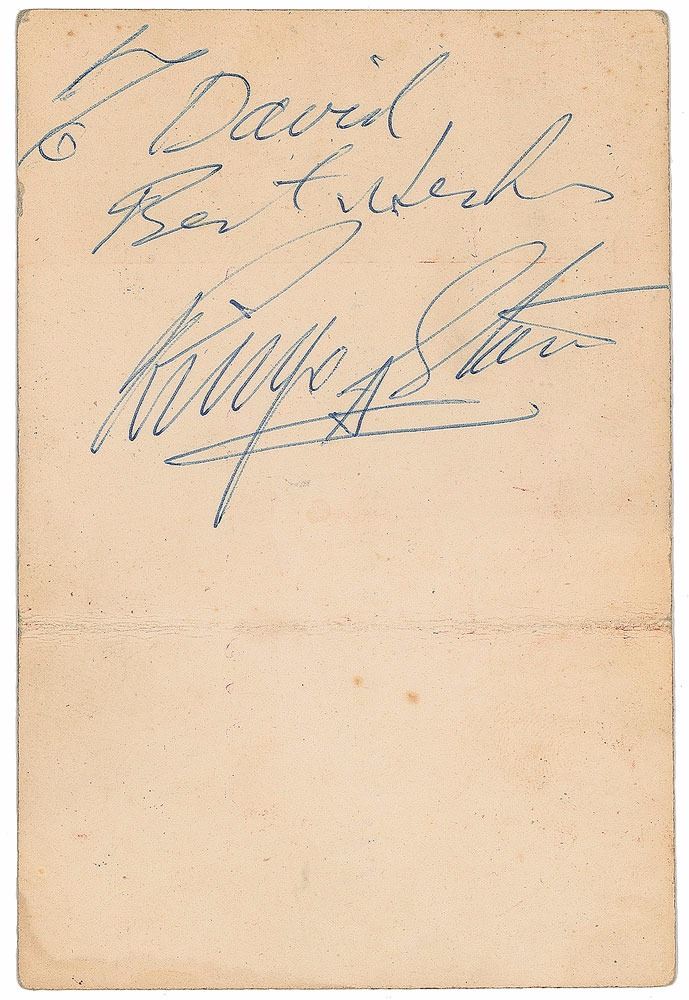 To David
Best wishes
Ringo Starr